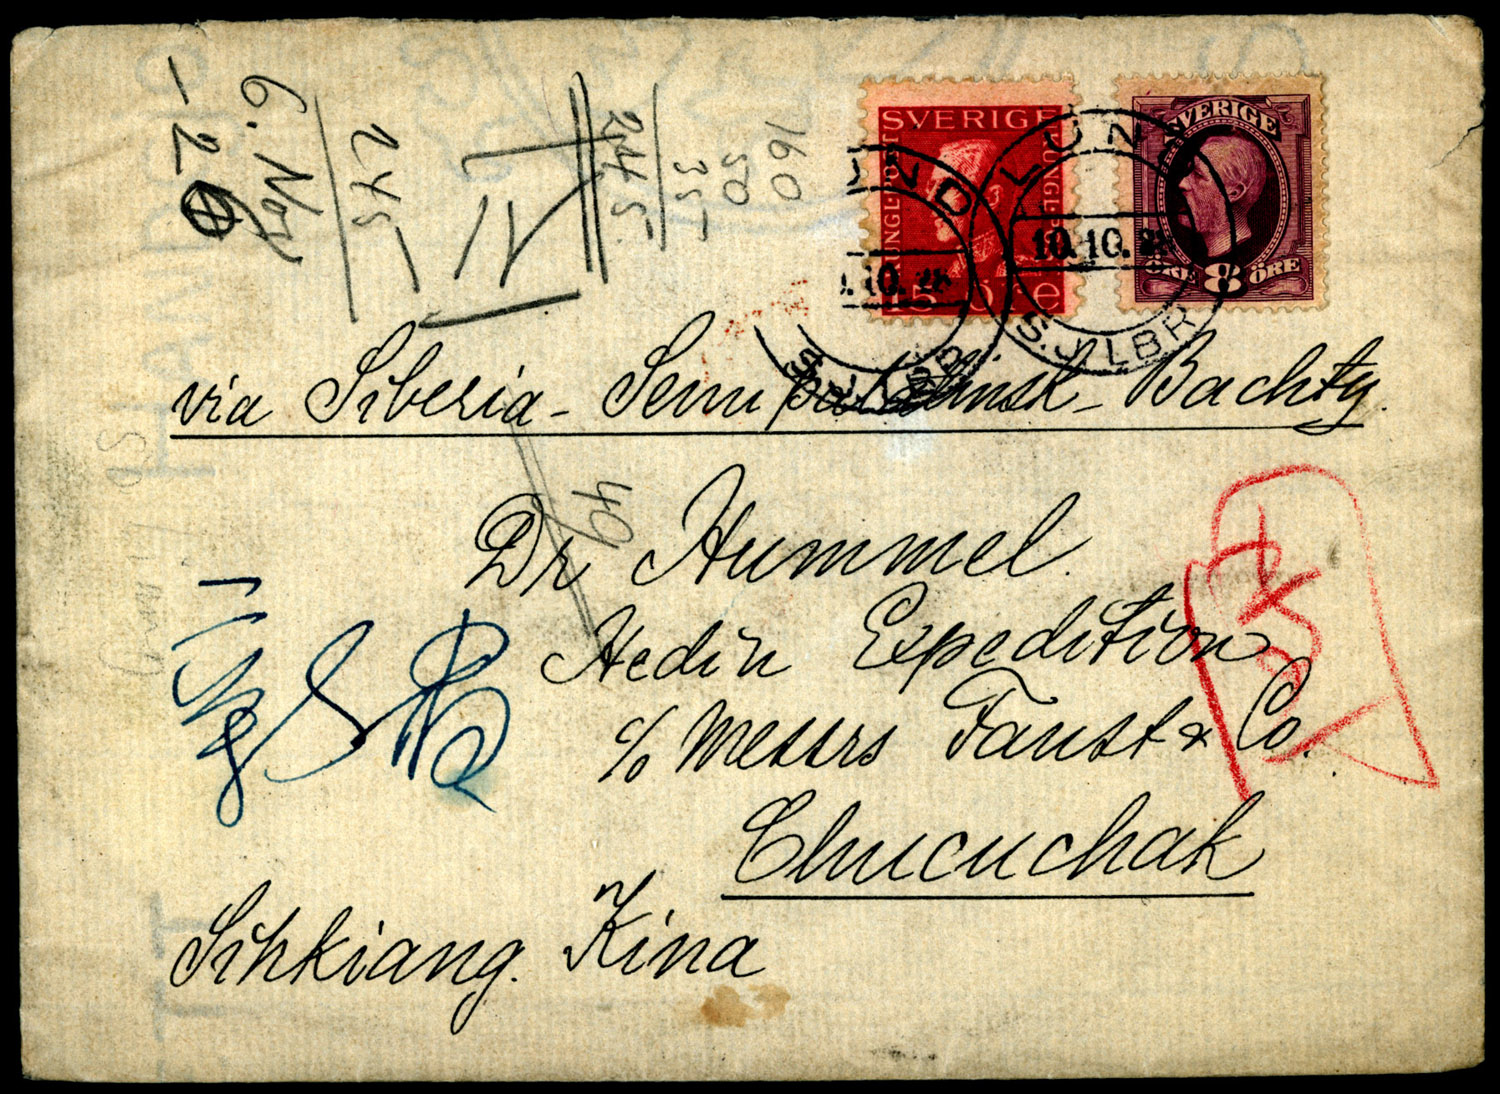 6. Nov
- 26
245
160
50
35
245
SVERIGE
KUNGL. POST
15 ÖRE
SVERIGE
ÖRE 8 ÖRE
LUND
10. 28
LUND
10.10.28
S.J. LBR
via Siberia - Semipalatinsk - Bachty.
49
Dr Hummel.
Hedin Expedition
c/o Messrs Faust & Co.
Chucuchak
Sihkiang. Kina